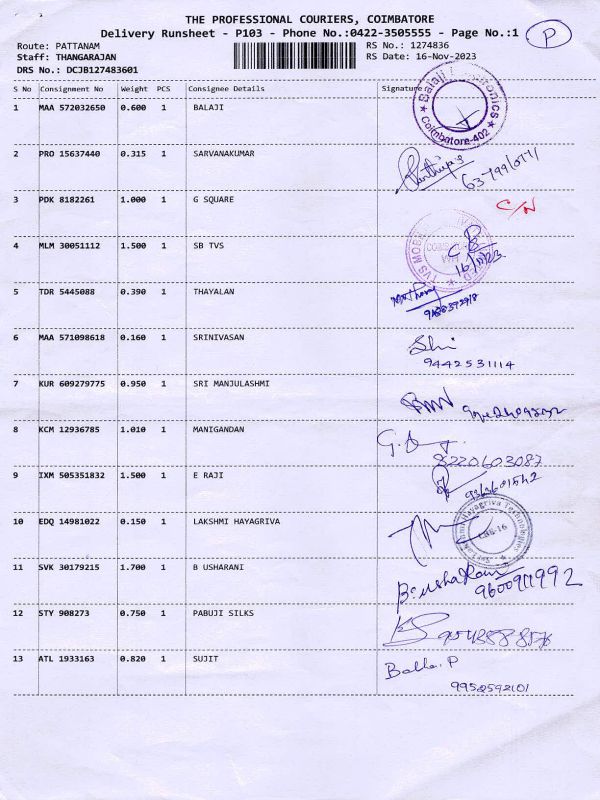 THE PROFESSIONAL COURIERS, COIMBATORE
Delivery Runsheet - P103 - Phone No.:0422-3505555 - Page No.:1
P
Route: PATTANAM RS No.: 1274836
Staff: THANGARAJAN RS Date: 16-Nov-2023
DRS No.: DCJB127483601
S No Consignment No Weight PCS Consignee Details Signature
1 MAA 572032650 0.600 1 BALAJI
Balaji
Coimbatore-402
2 PRO 15637440 0.315 1 SARVANAKUMAR
3 PDK 8182261 1.000 1 G SQUARE
C/N
4 MLM 30051112 1.500 1 SB TVS
TVS
5 TDR 5445088 0.390 1 THAYALAN
6 MAA 571098618 0.160 1 SRINIVASAN
9442531114
7 KUR 609279775 0.950 1 SRI MANJULASHMI
8 KCM 12936785 1.010 1 MANIGANDAN
8220603087
9 IXM 505351832 1.500 1 E RAJI
10 EDQ 14981022 0.150 1 LAKSHMI HAYAGRIVA
Hayagriva Technologies
CBE-16
11 SVK 30179215 1.700 1 B USHARANI
B. Usha Rani
12 STY 908273 0.750 1 PABUJI SILKS
13 ATL 1933163 0.820 1 SUJIT